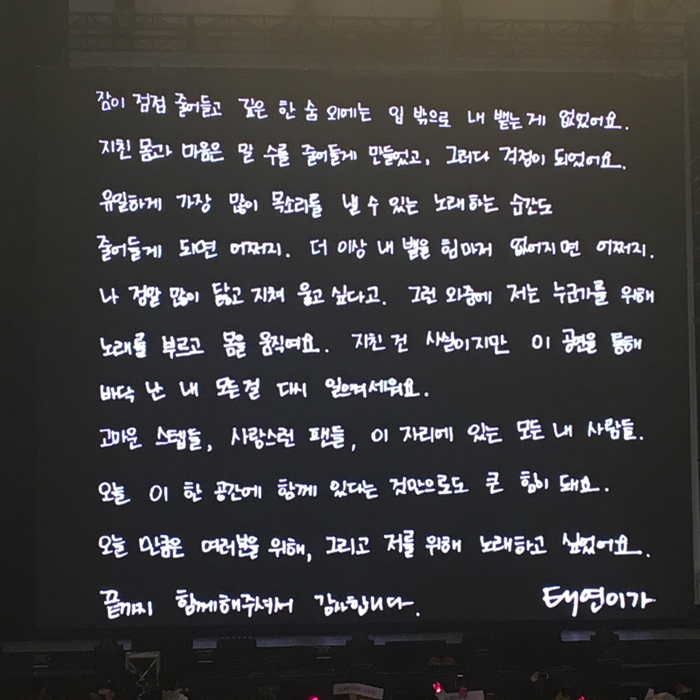 잠이 점점 줄어들고 깊은 한 숨 외에는 입 밖으로 내 뱉는 게 없었어요.
지친 몸과 마음은 말 수를 줄어들게 만들었고, 그러다 걱정이 되었어요.
유일하게 가장 많이 목소리를 낼 수 있는 노래하는 순간도
줄어들게 되면 어쩌지. 더 이상 내 뱉을 힘마저 없어지면 어쩌지.
나 정말 많이 닳고 지쳐 울고 싶다고. 그런 와중에 저는 누군가를 위해
노래를 부르고 몸을 움직여요. 지친 건 사실이지만 이 공연을 통해
바닥 난 내 모든걸 다시 일으켜세워요.
고마운 스텝들, 사랑스런 팬들, 이 자리에 있는 모든 내 사람들.
오늘 이 한 공간에 함께 있다는 것만으로도 큰 힘이 돼요.
오늘 만큼은 여러분을 위해, 그리고 저를 위해 노래하고 싶었어요.
끝까지 함께해주셔서 감사합니다. 태연이가